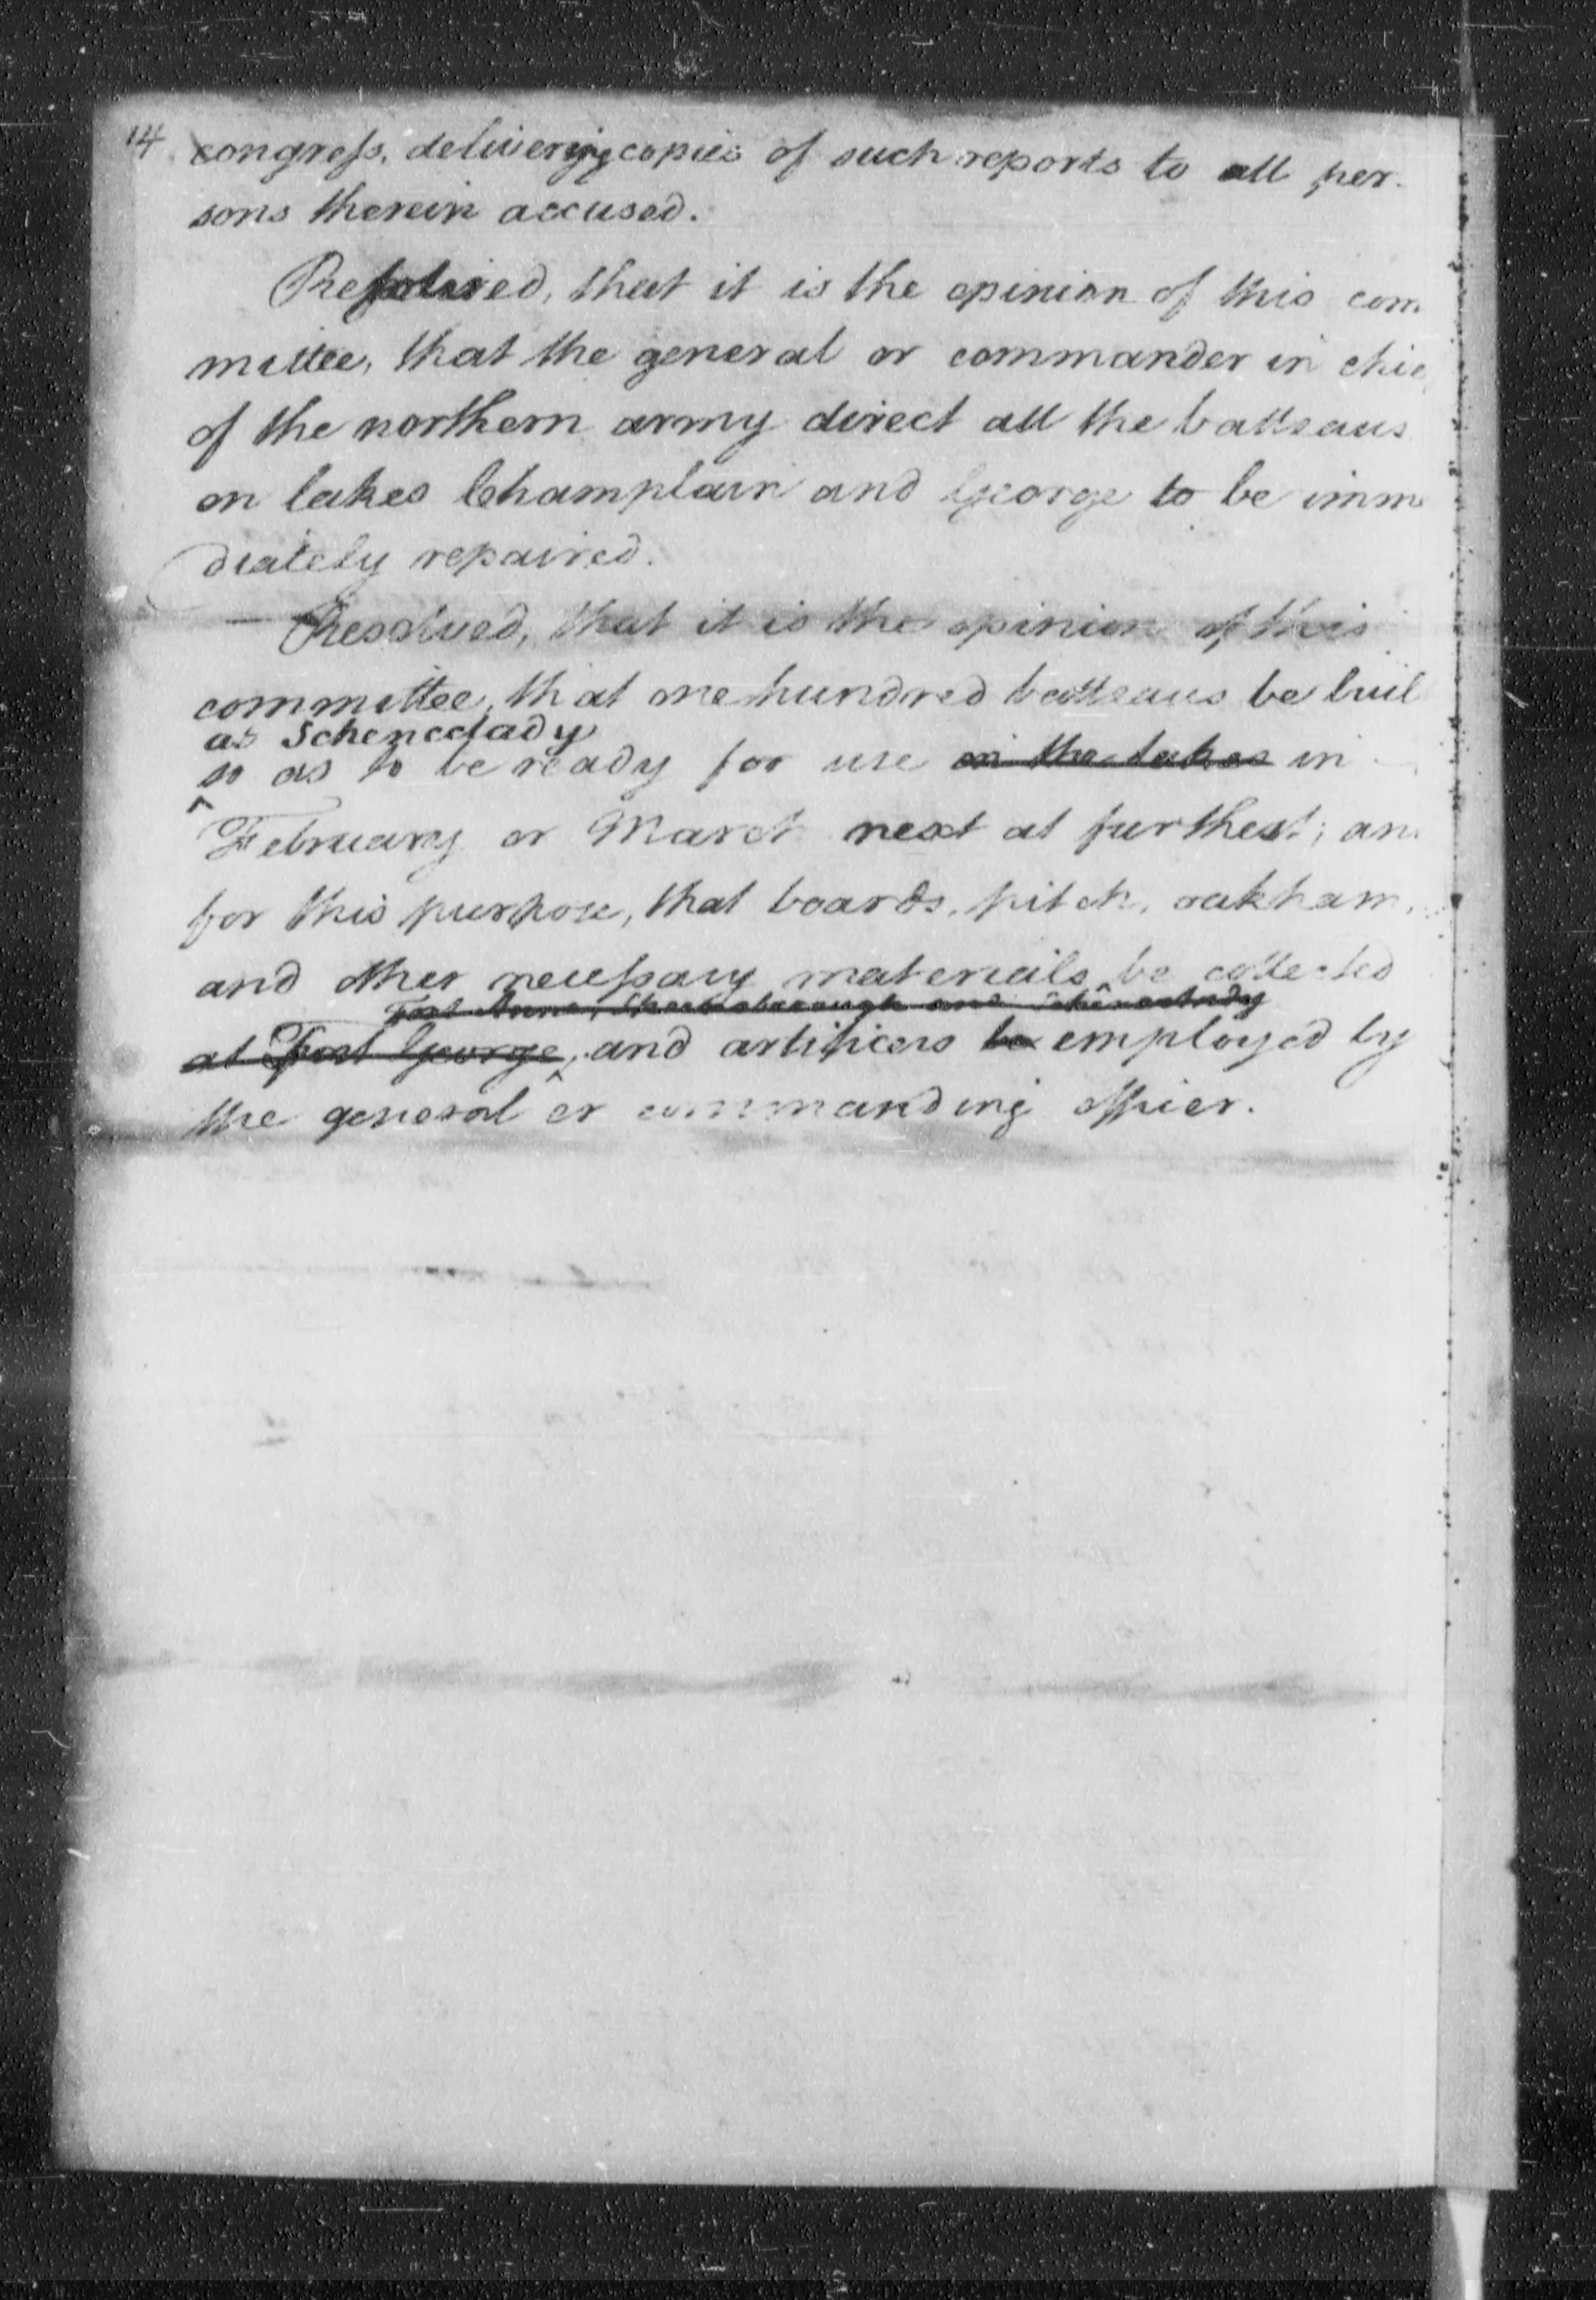 14 congress, delivering copies of such reports to all per-
sons therein accused.
Resolved, that it is the opinion of this com
mittee, that the general or commander in chie
of the northern army direct all the batteaus
on lakes Champlain and George to be imme
diately repaired.
Resolved, that it is the opinion of this
committee, that one hundred batteaus be buil
at Schenectady
so as to be ready for use on the lakes in
^
February or March next at furthest; an
for this purpose, that boards, pitch, oakham,
and other necessary materials be collected
Fort Anne, Skeensborough and Schenectady
at Fort George, and artificers be employed by
^
the general or commanding officer.